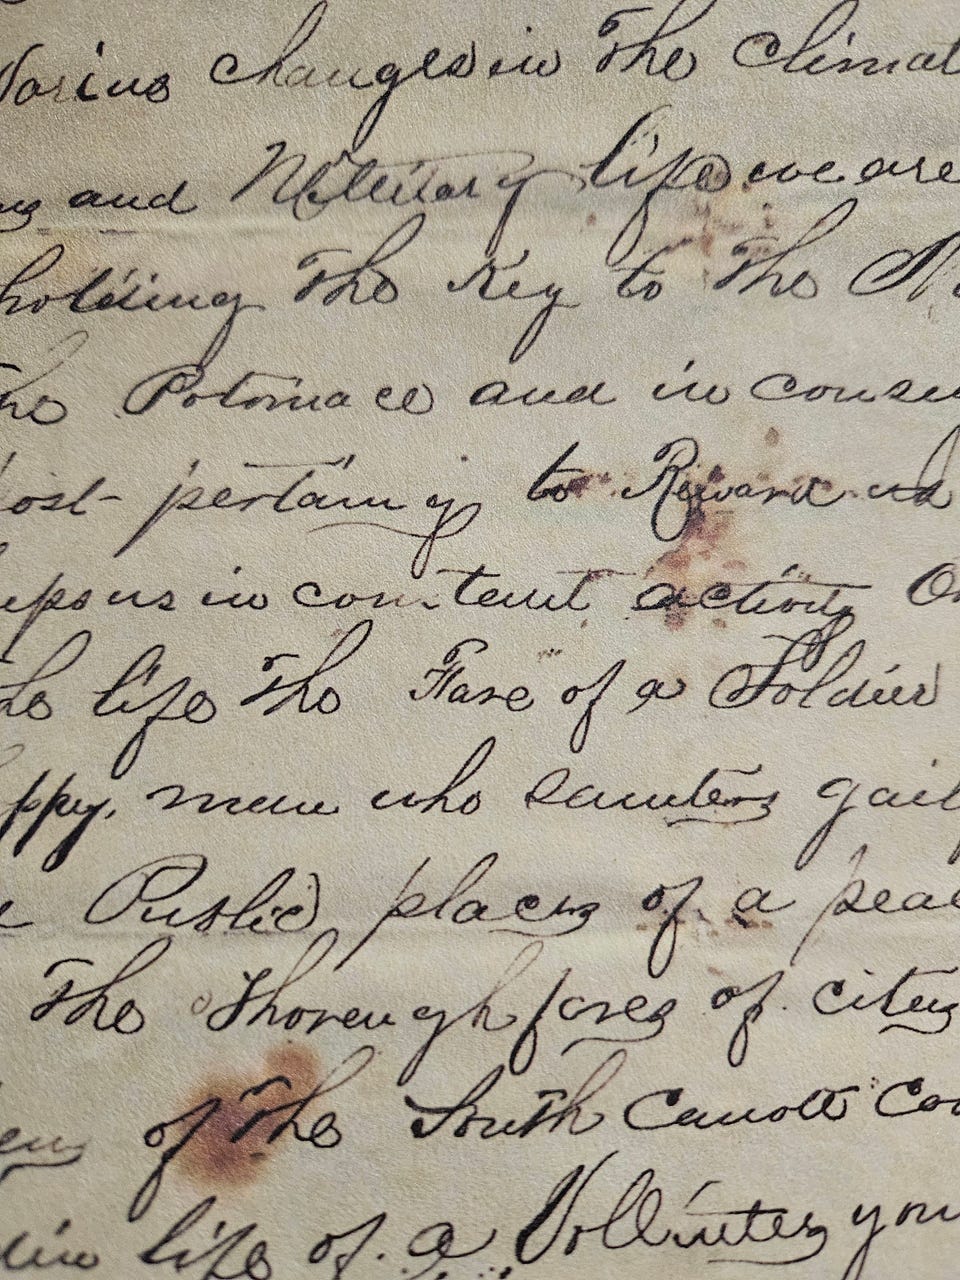 Varius changes in The Climat
and Millitary life we are
holding The Key to The
The Potomace and in conseq
Post pertaing to Reward and
eeps us in constant activity On
The life The Fare of a Soldier
appy, man who saunters gail
e Public places of a peac
The Thoroughfares of citys
of The South Cannott Com
life of a Vollinters you